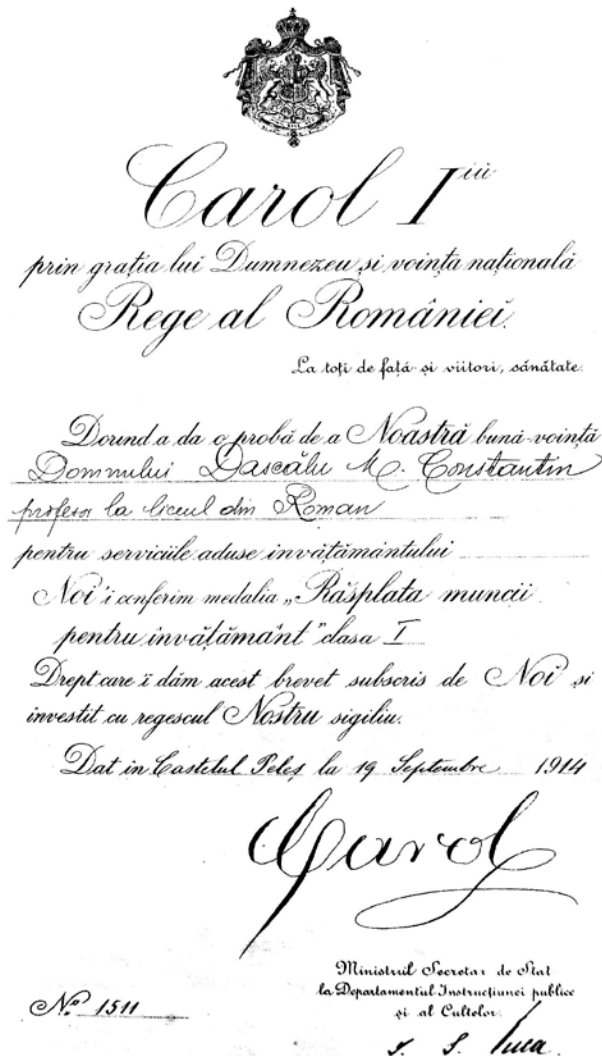 Carol I iii
prin grația lui Dumnezeu și voința națională
Rege al Românieĭ.
La toți de față și viitori, sănătate.
Dorind a da o probă de a Noastră bună-voință
Domnului Dascălu M. Constantin
profesor la liceul din Roman
pentru serviciile aduse invățământului
Noĭ 'i conferim medalia „Răsplata muncii
pentru învățământ" clasa I
Drept care ĭi dăm acest brevet subscris de Noĭ și
investit cu regescul Nostru sigiliu.
Dat in Castelul Peleș la 19 Septembre 1914
Carol
Ministrul Secretar de Stat
la Departamentul Instrucțiunei publice
și al Cultelor
No. 1511